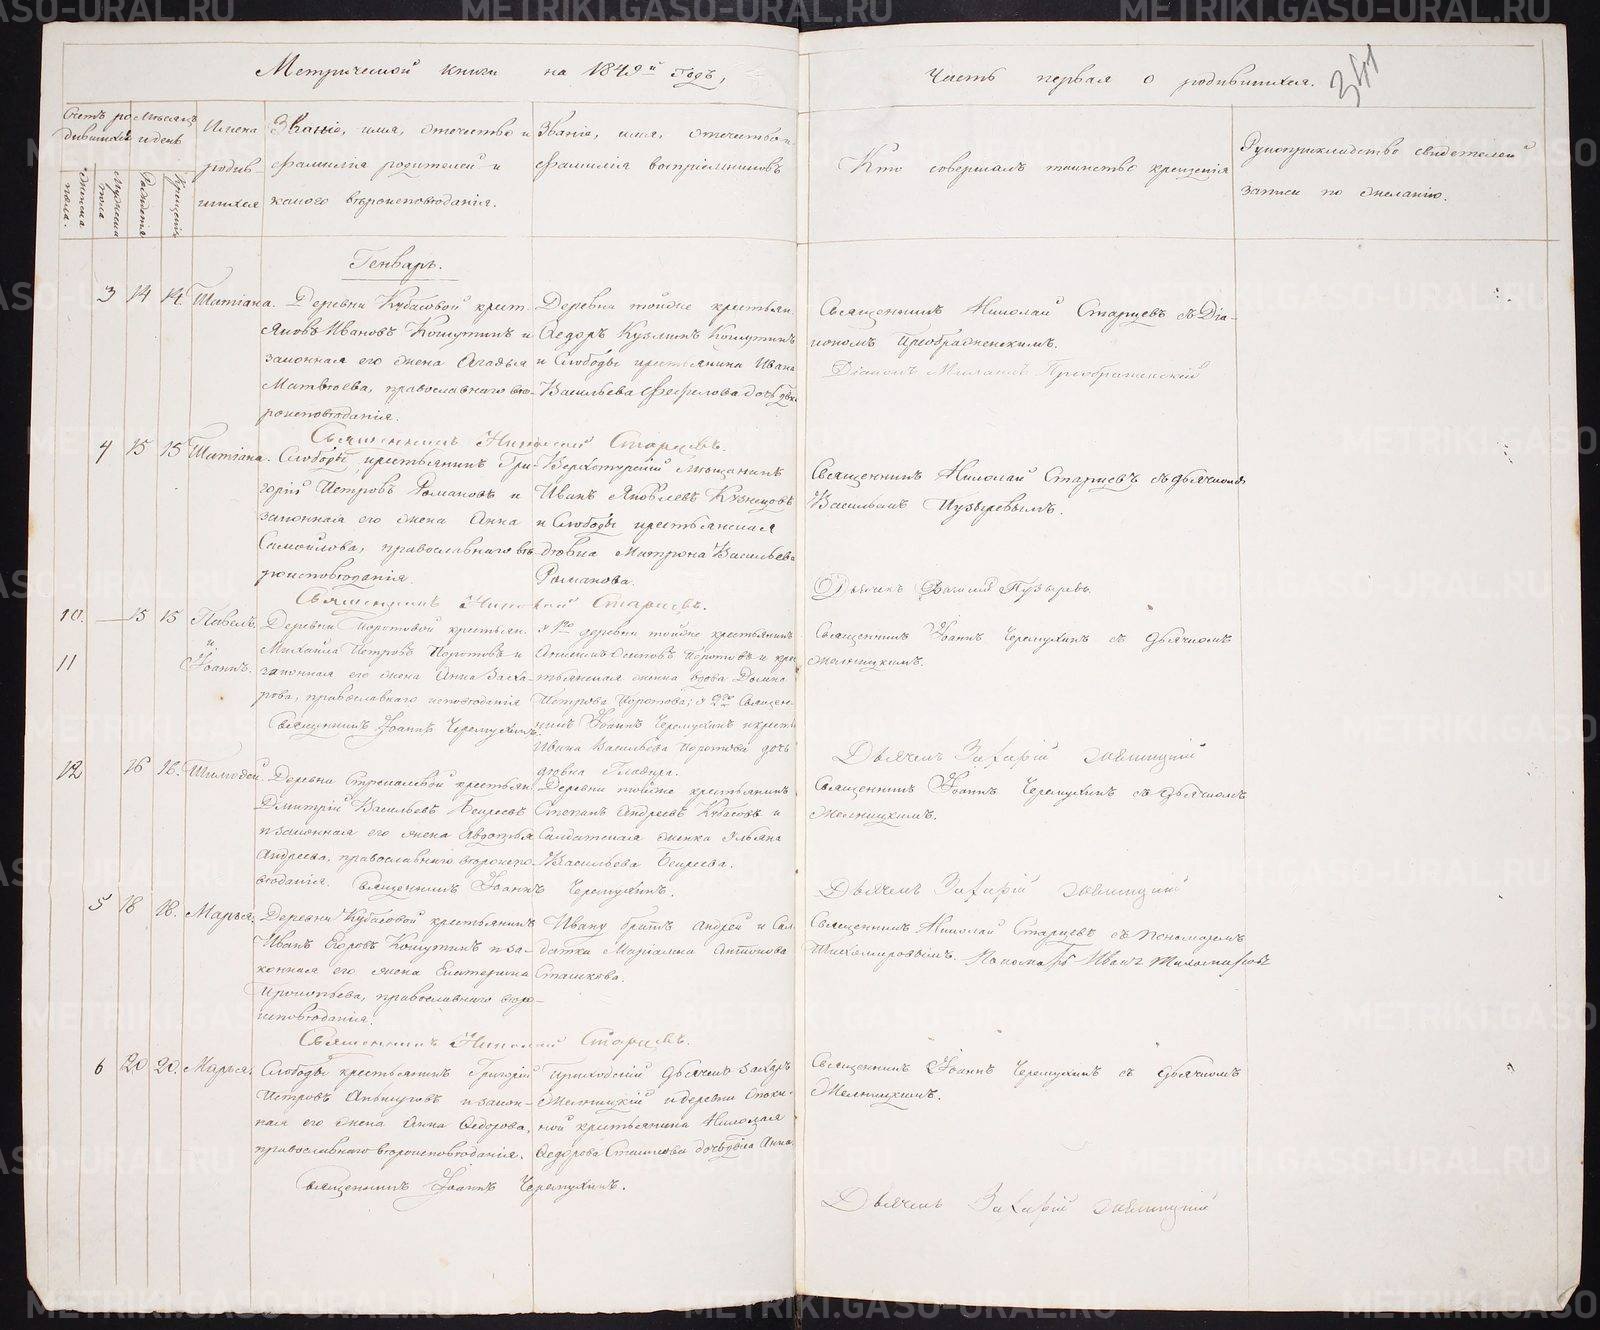 Метрической книги на 1849й годъ,
Часть первая о родившихся.
341
Счетъ родившихся
Мѣсяцъ и день
Имена родившихся
Званіе, имя, отечество и фамилія родителей и какого вѣроисповѣданія.
Званіе, имя, отчество и фамилія воспріемниковъ
Кто совершалъ таинство крещенія
Рукоприкладство свидетелей записи по желанію.
женска пола.
Мужеска пола
Рожденія
Крещенія
Генварь.
3 14 14 Татіана.
Деревни Кубасовой крест.
Яковъ Ивановъ Кошутинъ и
законная его жена Агафья
Матвѣева, православнаго вѣ-
роисповѣданія.
Деревни тойже крестьян.
Федоръ Кузминъ Кошутинъ
и Слободы крестьянина Ивана
Васильева Фефилова дочь
Священникъ Николай Старцевъ съ Діа-
кономъ Преображенскимъ.
Діаконъ Преображенскій
Священникъ Николай Старцевъ.
4 15 15 Татіана.
Слободы крестьянинъ Гри-
горій Петровъ Романовъ и
законная его жена Анна
Самойлова, православнаго вѣ-
роисповѣданія.
Верхотурскій мѣщанинъ
Иванъ Яковлевъ Кузнецовъ
и Слободы крестьянская
дѣвка Матрона Васильева
Романова.
Священникъ Николай Старцевъ съ дьячкомъ
Васильемъ Пузыревымъ.
Дьячекъ Василій Пузыревъ
Священникъ Николай Старцевъ.
10. 15 15 Павелъ
и
11 Іоаннъ.
Деревни Коротовой крестьян.
Михайла Петровъ Коротовъ и
законная его жена Анна Заха-
рова, православнаго исповѣданія
Священникъ Іоаннъ Черемухинъ.
у 1го деревни тойже крестьянинъ
Осиповъ Коротовъ и кре-
стьянская женка вдова Домна
Петрова Коротова; у 2го Священ-
никъ Іоаннъ Черемухинъ и крест.
Ивана Васильева Коротова дочь
дѣвка
Священникъ Іоаннъ Черемухинъ съ дьячкомъ
Мелницкимъ.
Дьячекъ Захарій Мелницкій
12 16 16. Тимофей.
Деревни крестьян.
Дмитрій Васильевъ и законная его жена Авдотья
Андреева, православнаго вѣроиспо-
вѣданія. Священникъ Іоаннъ Черемухинъ.
Деревни тойже крестьянинъ
Степанъ Андреевъ Кубасовъ и
Салдатская женка Ульяна
Васильева
Священникъ Іоаннъ Черемухинъ съ дьячкомъ
Мелницкимъ.
Дьячекъ Захарій Мелницкій
5 18 18. Марья.
Деревни Кубасовой крестьянинъ
Иванъ Егоровъ Кошутинъ и за-
конная его жена Екатерина
Прокопьева, православнаго вѣро-
исповѣданія.
Ивану братъ Андрей и Сал-
датка Маріамна Антонова
Сташкова.
Священникъ Николай Старцевъ съ пономаремъ
Тихомировымъ. Пономарь Иванъ Тихомировъ
Священникъ Николай Старцевъ.
6 20 20. Марья.
Слободы крестьянинъ Григорій
Петровъ и закон-
ная его жена Анна Федорова,
православнаго вѣроисповѣданія.
Священникъ Іоаннъ Черемухинъ.
Приходскій дьячекъ Захаръ
Мелницкій и деревни
крестьянина Николая
Федорова Сташкова дочь дѣвка Анна.
Священникъ Іоаннъ Черемухинъ съ дьячкомъ
Мелницкимъ.
Дьячекъ Захарій Мелницкій
METRIKI.GASO-URAL.RU